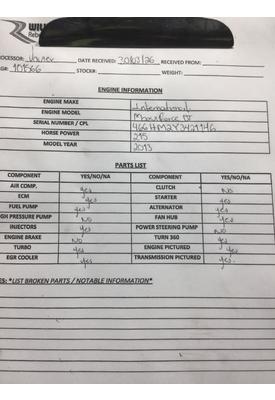 Rebu
DATE RECEIVED: 30/03/26 RECEIVED FROM:
STOCK#: WEIGHT:
ENGINE INFORMATION
ENGINE MAKE International
ENGINE MODEL Maxxforce DT
SERIAL NUMBER / CPL 466HM2Y3421146
HORSE POWER 245
MODEL YEAR 2013
PARTS LIST
COMPONENT YES/NO/NA COMPONENT YES/NO/NA
AIR COMP. yes CLUTCH No
ECM yes STARTER yes
FUEL PUMP yes ALTERNATOR yes
GH PRESSURE PUMP No FAN HUB yes
INJECTORS yes POWER STEERING PUMP No
ENGINE BRAKE No TURN 360 yes
TURBO yes ENGINE PICTURED yes
EGR COOLER yes TRANSMISSION PICTURED yes
ES: *LIST BROKEN PARTS / NOTABLE INFORMATION*